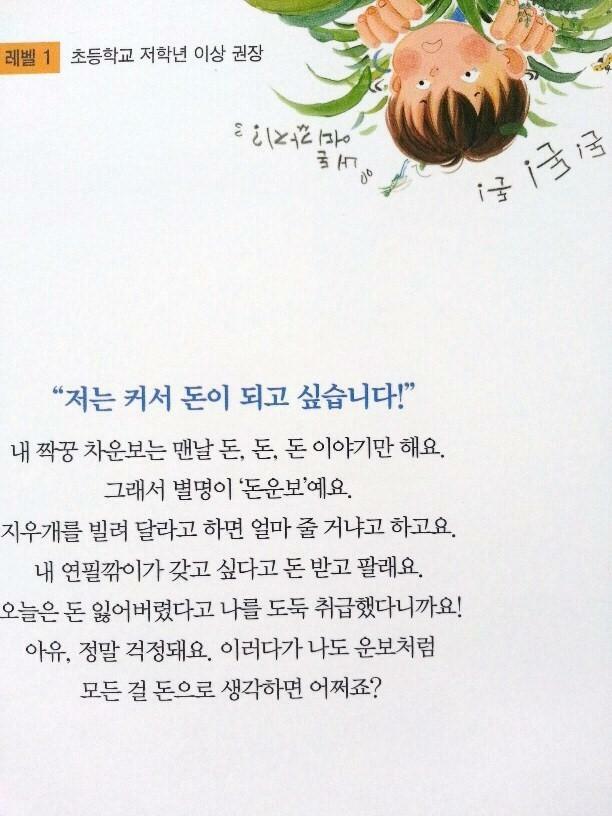 레벨 1 초등학교 저학년 이상 권장
돈! 돈! 돈!
내 돈
어디 갔지?
“저는 커서 돈이 되고 싶습니다!”
내 짝꿍 차운보는 맨날 돈, 돈, 돈 이야기만 해요.
그래서 별명이 ‘돈운보’예요.
지우개를 빌려 달라고 하면 얼마 줄 거냐고 하고요.
내 연필깎이가 갖고 싶다고 돈 받고 팔래요.
오늘은 돈 잃어버렸다고 나를 도둑 취급했다니까요!
아유, 정말 걱정돼요. 이러다가 나도 운보처럼
모든 걸 돈으로 생각하면 어쩌죠?